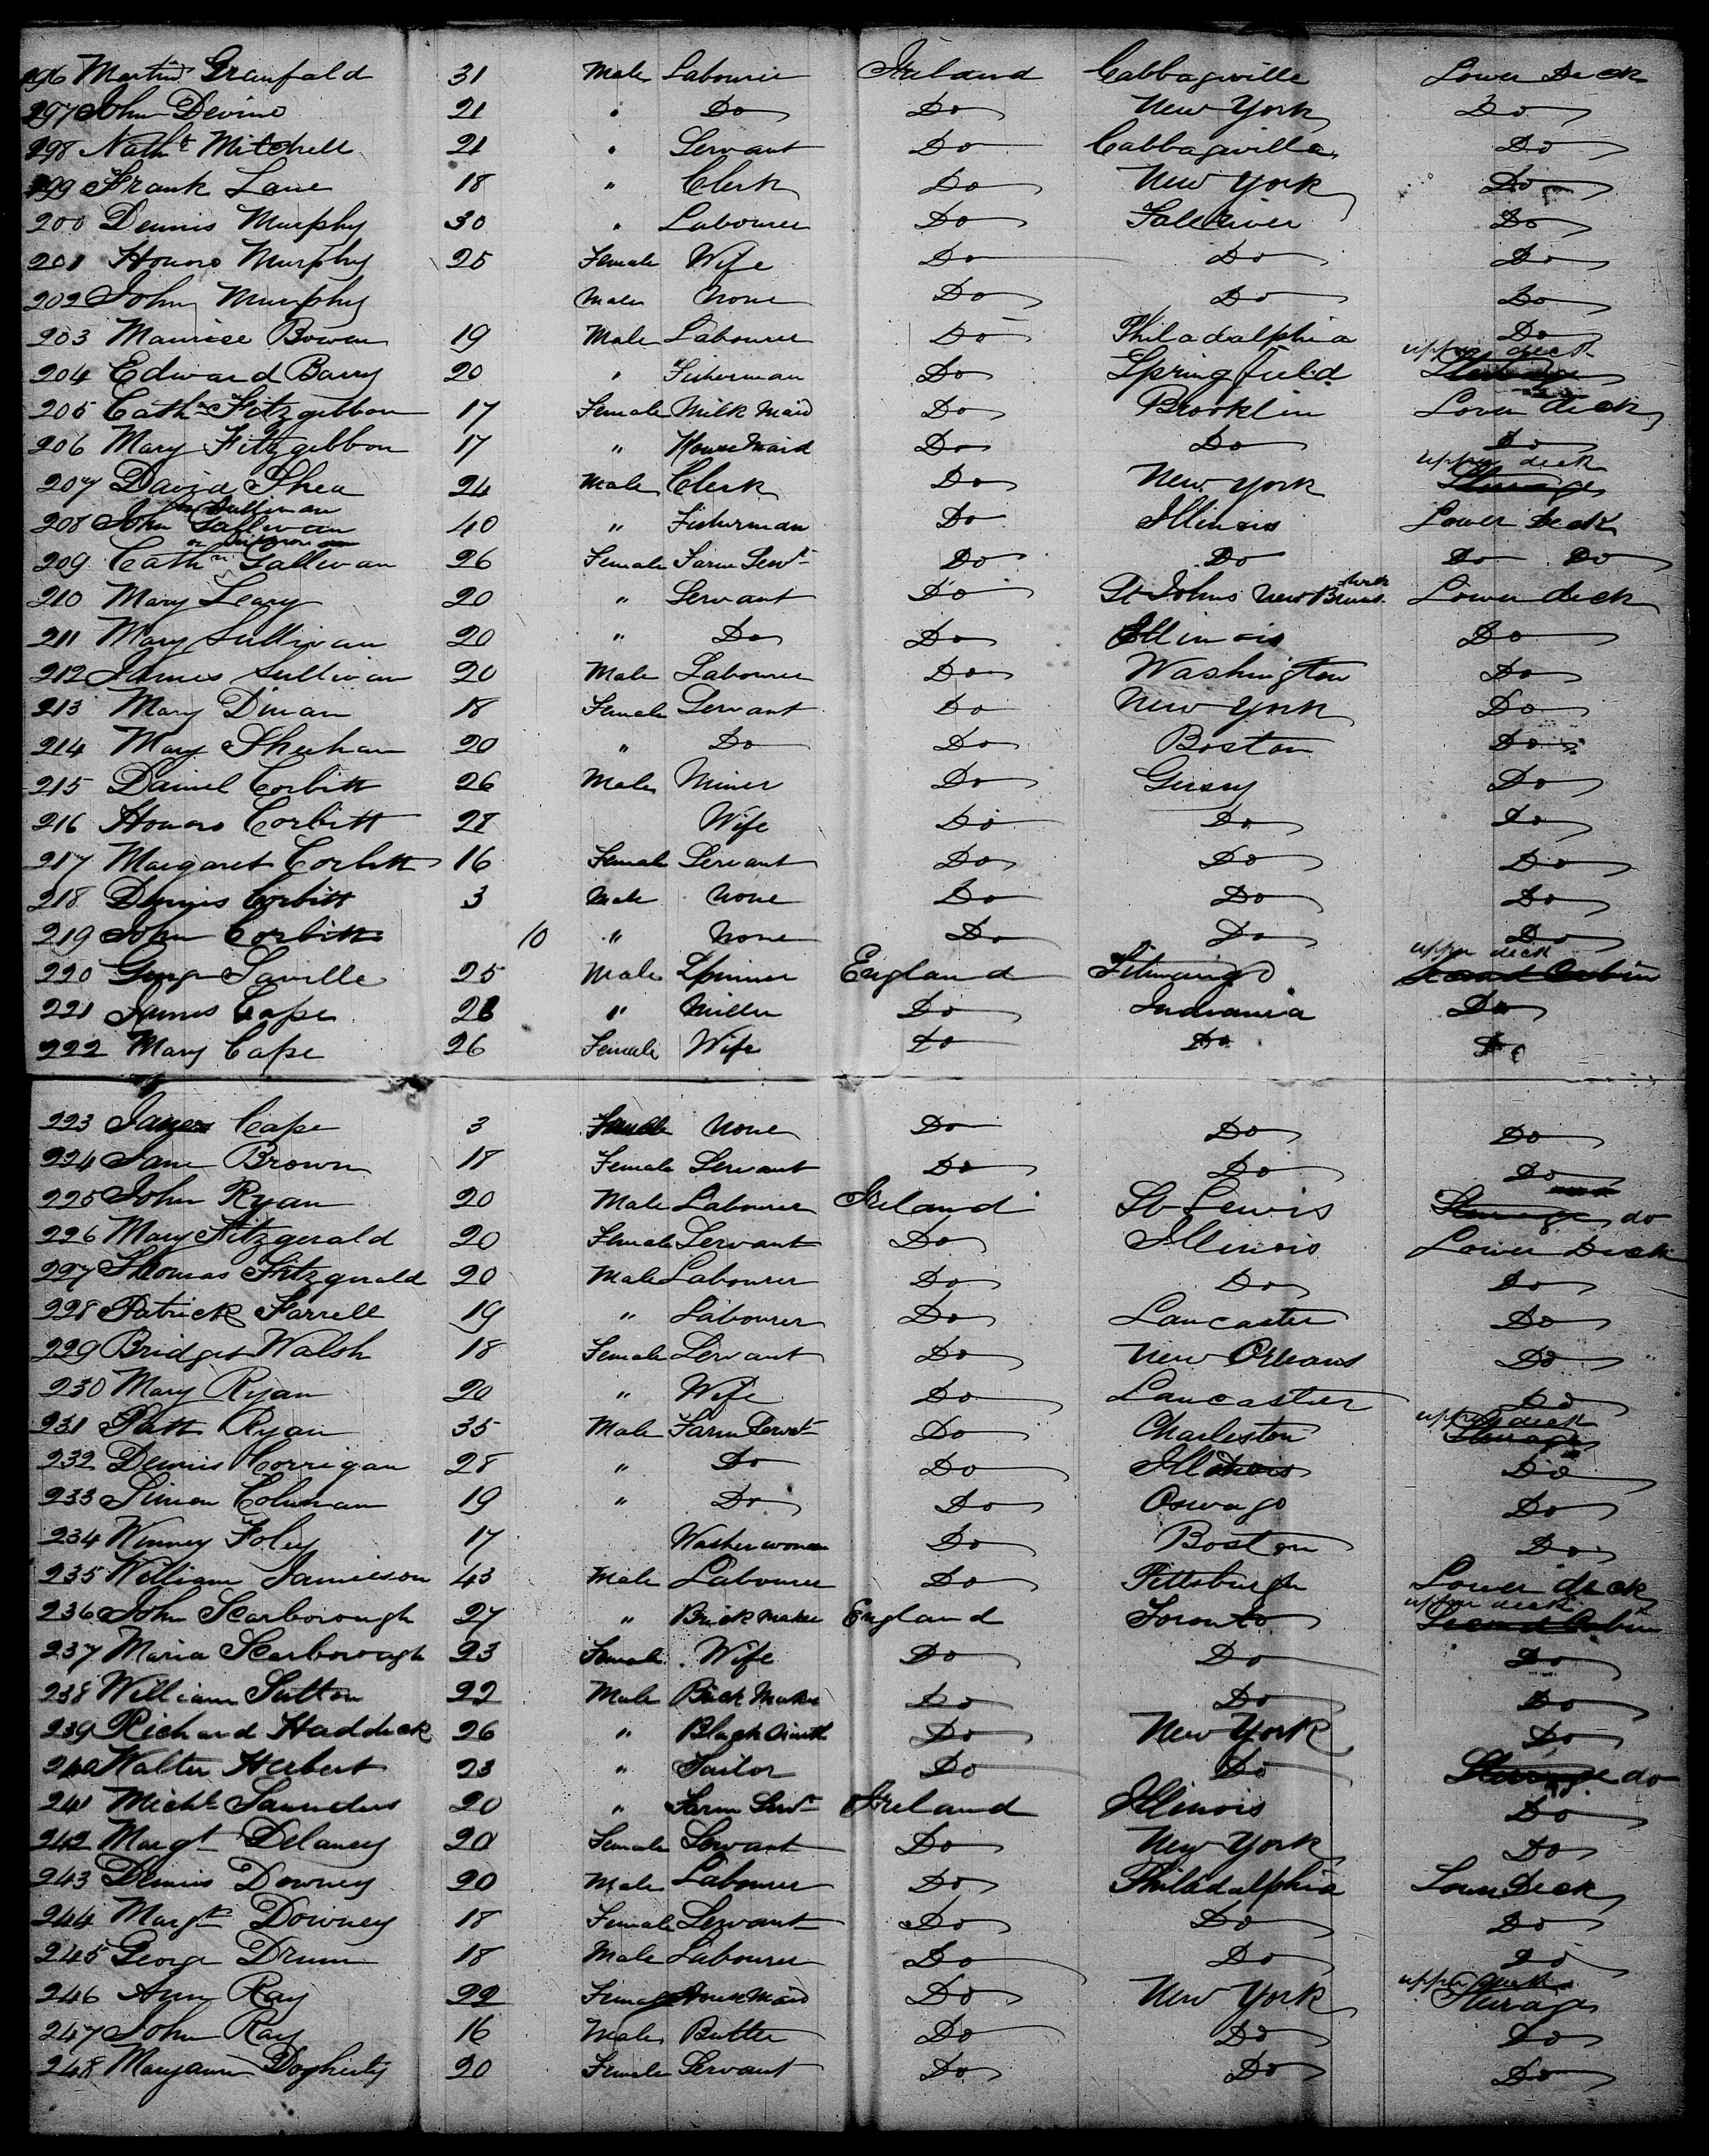 196 Martin Granfald 31 Male Labourer Ireland Cabbagville Lower Deck
197 John Devine 21 " Do Do New York Do
198 Nathl Mitchell 21 " Servant Do Cabbagville Do
199 Frank Lane 18 " Clerk Do New York Do
200 Dennis Murphy 30 " Labourer Do Fallriver Do
201 Honoro Murphy 25 Female Wife Do Do Do
202 John Murphy Male None Do Do Do
203 Maurice Bowen 19 Male Labourer Do Philadalphia Do
upper deck
204 Edward Barry 20 " Fisherman Do Springfield Steerage
205 Cathne Fitzgibbon 17 Female Milk Maid Do Brooklin Lower deck
206 Mary Fitzgibbon 17 " House Maid Do Do Do
upper deck
207 David Shea 24 Male Clerk Do New York Steerage
Sullivan
208 John Gallivan 40 " Fisherman Do Illinois Lower Deck
209 Cathn Gallivan 26 Female Farm Servt Do Do Do Do
210 Mary Leary 20 " Servant Do St Johns New Brunswick Lower deck
211 Mary Sullivan 20 " Do Do Illinois Do
212 James Sullivan 20 Male Labourer Do Washington Do
213 Mary Dinan 18 Female Servant Do New York Do
214 Mary Sheehan 20 " Do Do Boston Do
215 Daniel Corbitt 26 Male Miner Do Gersy Do
216 Honoro Corbitt 28 Wife Do Do Do
217 Margaret Corbitt 16 Female Servant Do Do Do
218 Dennis Corbitt 3 Male None Do Do Do
219 John Corbitt 10 " None Do Do Do
upper deck
220 George Saville 25 Male Spinner England Second Cabin
221 James Cape 28 " Miller Do Indiania Do
222 Mary Cape 26 Female Wife Do Do Do
223 Cape 3 Female None Do Do Do
224 Jane Brown 18 Female Servant Do Do Do
225 John Ryan 20 Male Labourer Ireland St Lewis Steerage do
226 Mary Fitzgerald 20 Female Servant Do Illinois Lower Deck
227 Thomas Fitzgerald 20 Male Labourer Do Do Do
228 Patrick Farrell 19 " Labourer Do Lancaster Do
229 Bridget Walsh 18 Female Servant Do New Orleans Do
230 Mary Ryan 20 " Wife Do Lancaster Do
upper deck
231 Patt Ryan 35 Male Farm Servt Do Charleston Steerage
232 Dennis Corrigan 28 " Do Do Illinois Do
233 Simon Coleman 19 " Do Do Oswago Do
234 Winney Foley 17 Washerwoman Do Boston Do
235 William Jamieson 43 Male Labourer Do Pittsburgh Lower deck
upper deck
236 John Scarborough 27 " Brick Maker England Toronto Second Cabin
237 Maria Scarborough 23 Female Wife Do Do Do
238 William Sutton 22 Male Brick Maker Do Do Do
239 Richard Haddick 26 " Black Smith Do New York Do
240 Walter Herbert 23 " Tailor Do Do Steerage do
241 Michl Saunders 20 " Farm Servt Ireland Illinois Do
242 Margt Delaney 20 Female Servant Do New York Do
243 Dennis Downey 20 Male Labourer Do Philadalphia Lower Deck
244 Margt Downey 18 Female Servant Do Do Do
245 George Drum 18 Male Labourer Do Do Do
upper deck
246 Ann Ray 22 Female House Maid Do New York Steerage
247 John Ray 16 Male Butler Do Do Do
248 Maryann Dogherty 20 Female Servant Do Do Do